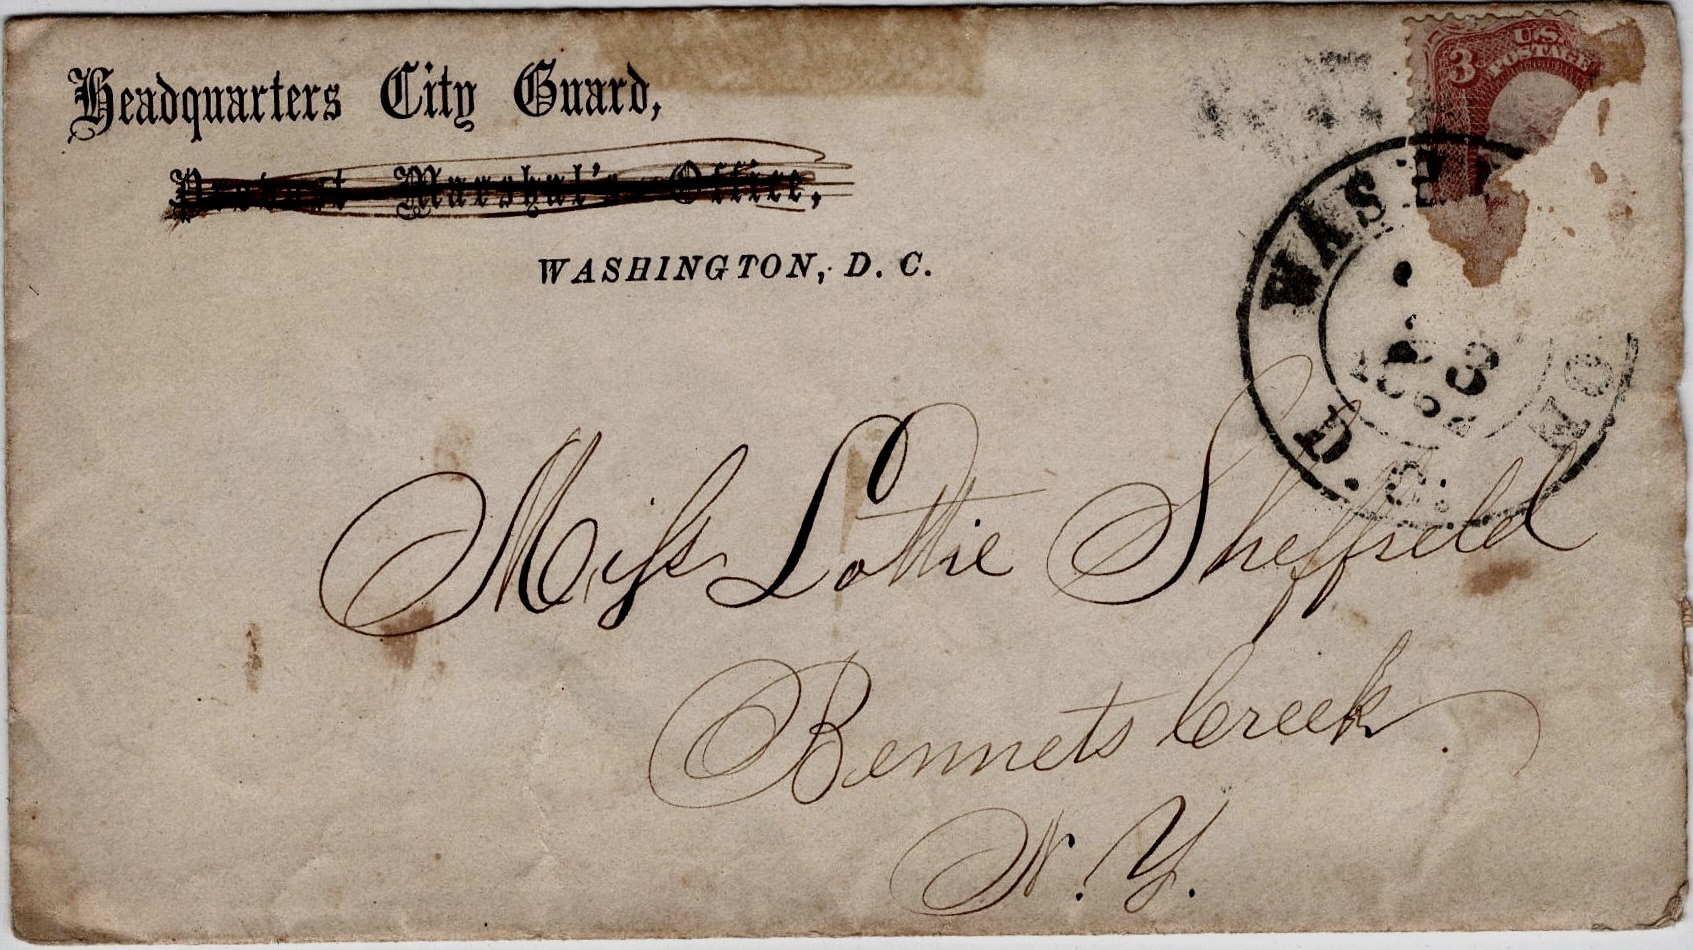 Headquarters City Guard,
Provost Marshal's Office,
WASHINGTON, D. C.
U.S. POSTAGE
3
WASH ON
D. C.
3
Miss Lottie Sheffield
Bennets Creek
N. Y.